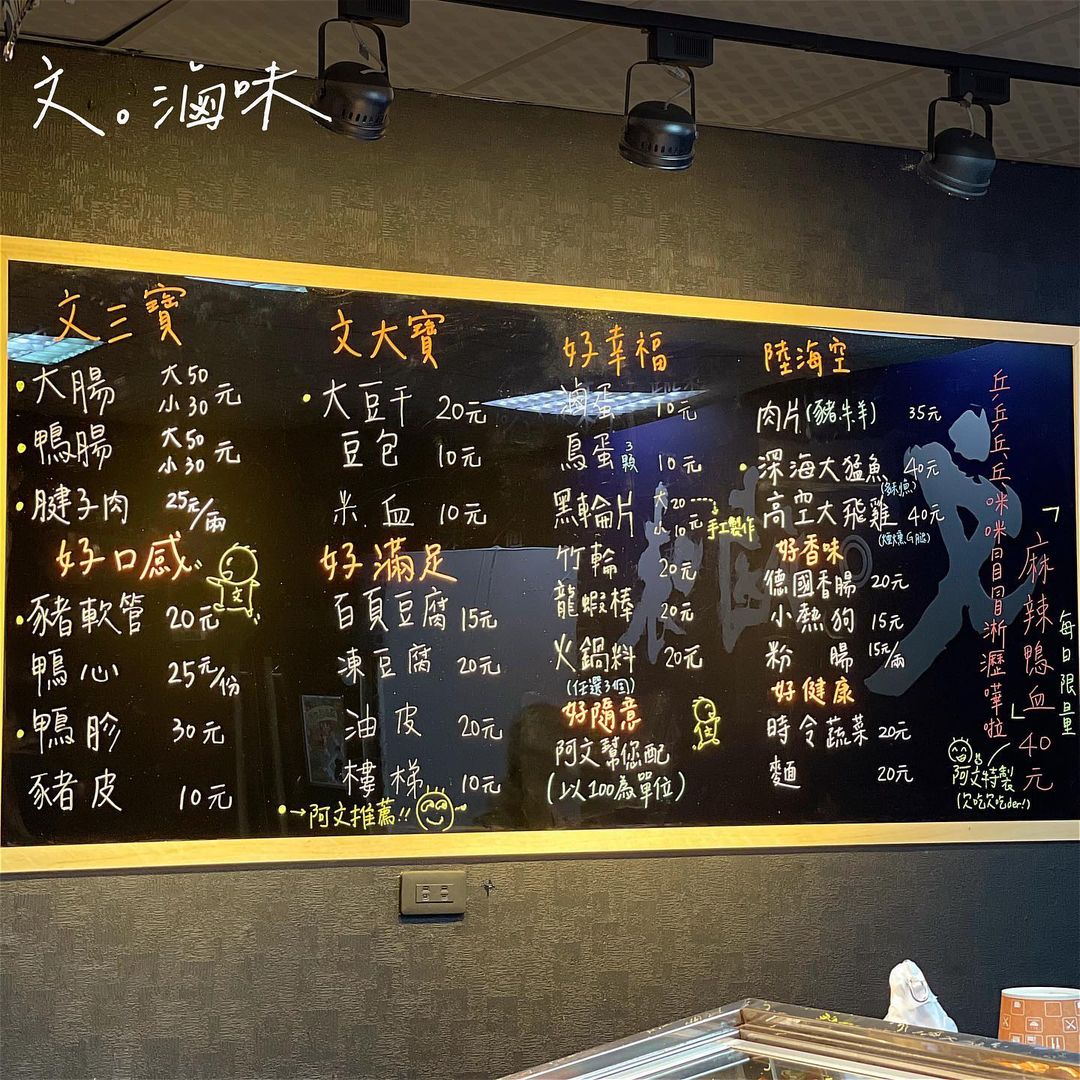 文。滷味
文三寶
大腸 大50 小30 元
鴨腸 大50 小30 元
腱子肉 25元/兩
好口感
文
豬軟管 20元
鴨心 25元/份
鴨胗 30元
豬皮 10元
文大寶
大豆干 20元
豆包 10元
米血 10元
好滿足
百頁豆腐 15元
凍豆腐 20元
油皮 20元
樓梯 10元
→阿文推薦!!
好幸福
滷蛋 10元
鳥蛋 3顆 10元
黑輪片 大20 小10 元
手工製作
竹輪 20元
龍蝦棒 20元
火鍋料 20元
(任選3個)
好隨意
阿文幫您配
(以100為單位)
陸海空
肉片(豬.牛.羊) 35元
深海大猛魚 40元
高空大飛雞 40元
好香味
德國香腸 20元
小熱狗 15元
粉腸 15元/兩
好健康
時令蔬菜 20元
麵 20元
乒乒乓乓咪咪冒冒淅瀝嘩啦
「麻辣鴨血」40元
每日限量
阿文特製
(次吃次吃der!)